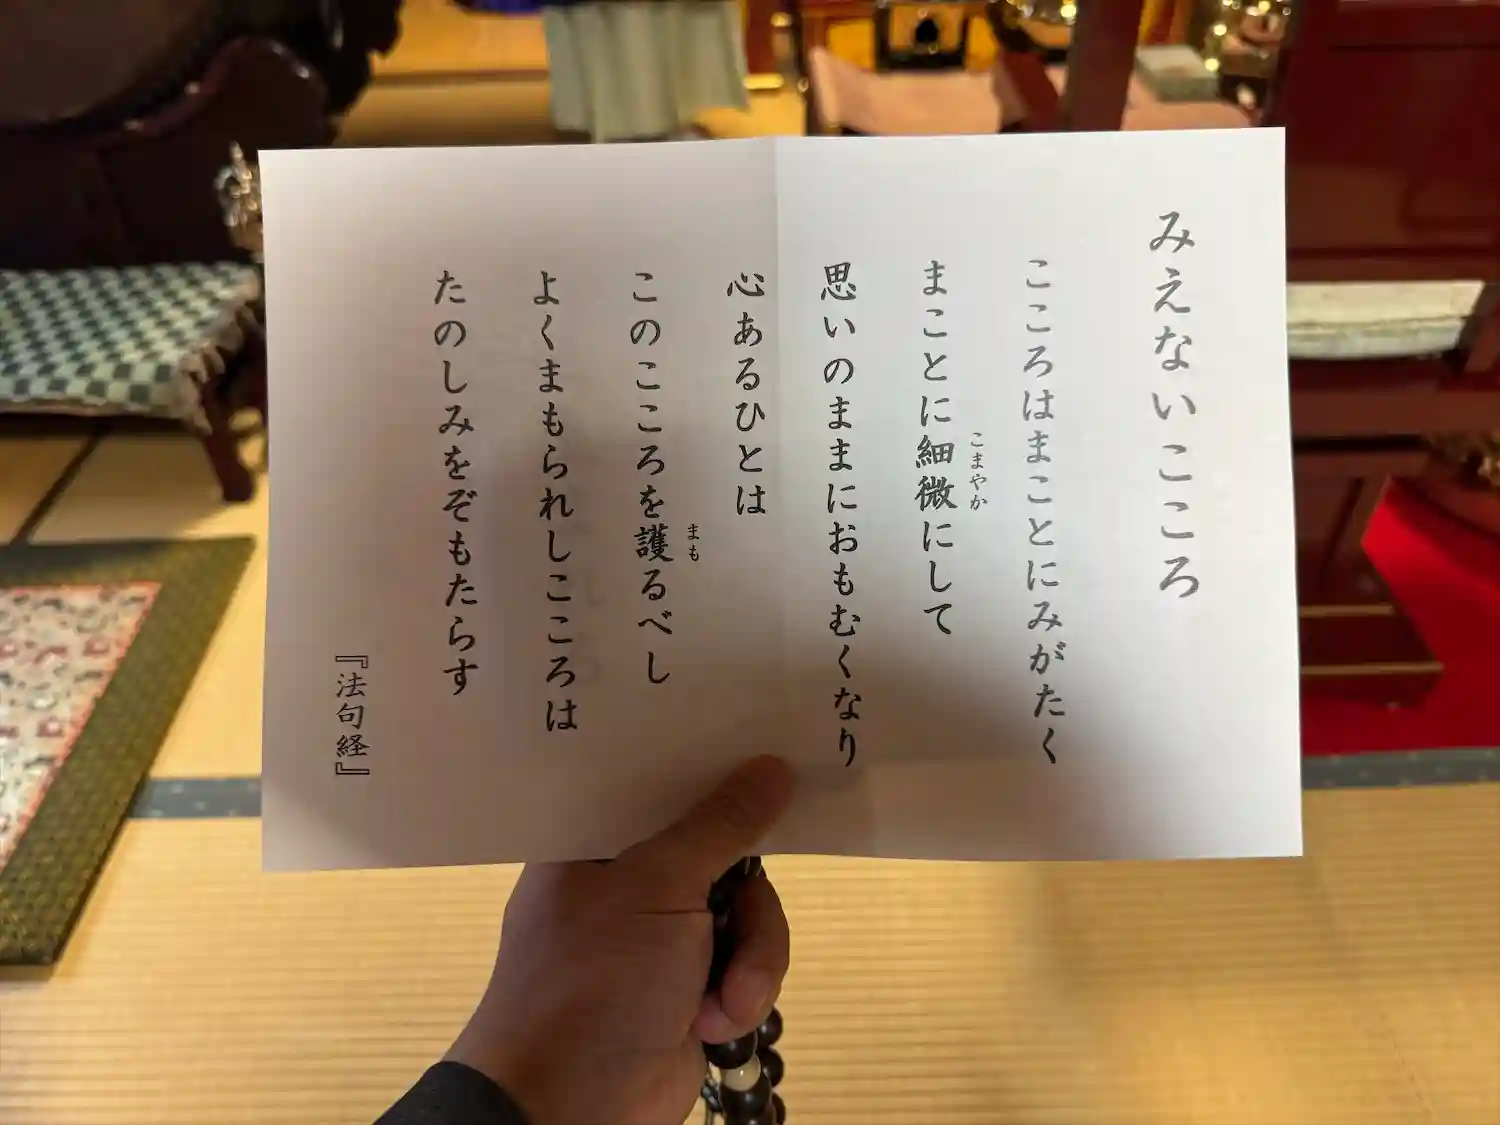 みえないこころ
こころはまことにみがたく
まことに細微にして
こまやか
思いのままにおもむくなり
心あるひとは
このこころを護るべし
まも
よくまもられしこころは
たのしみをぞもたらす
『法句経』